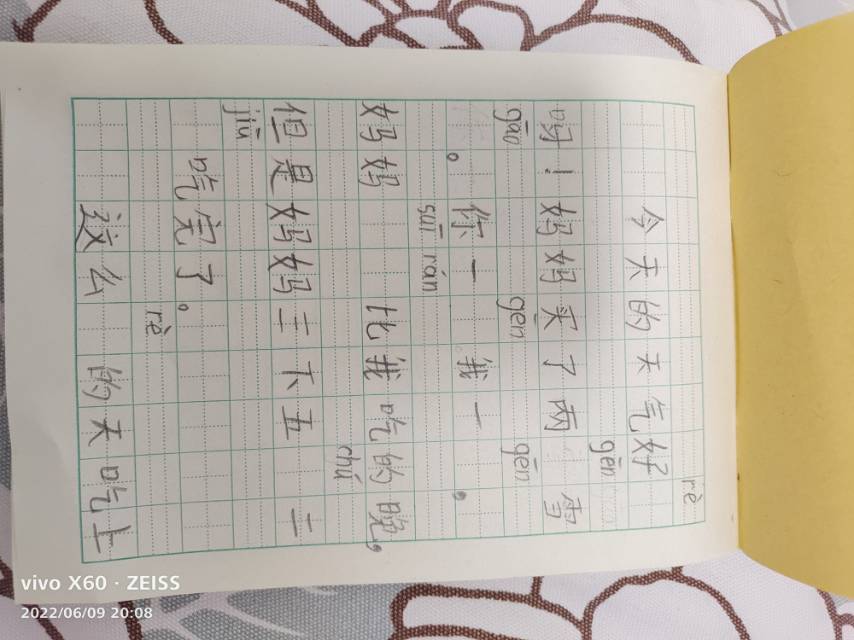 rè
今天的天气好
gēn
呀！妈妈买了两 雪
gāo gēn gēn
。你一 我一 。
suī rán
妈妈 比我吃的晚，
chú
但是妈妈三下五 二
jiū
吃完了。
rè
这么 的天吃上
vivo X60 · ZEISS
2022/06/09 20:08